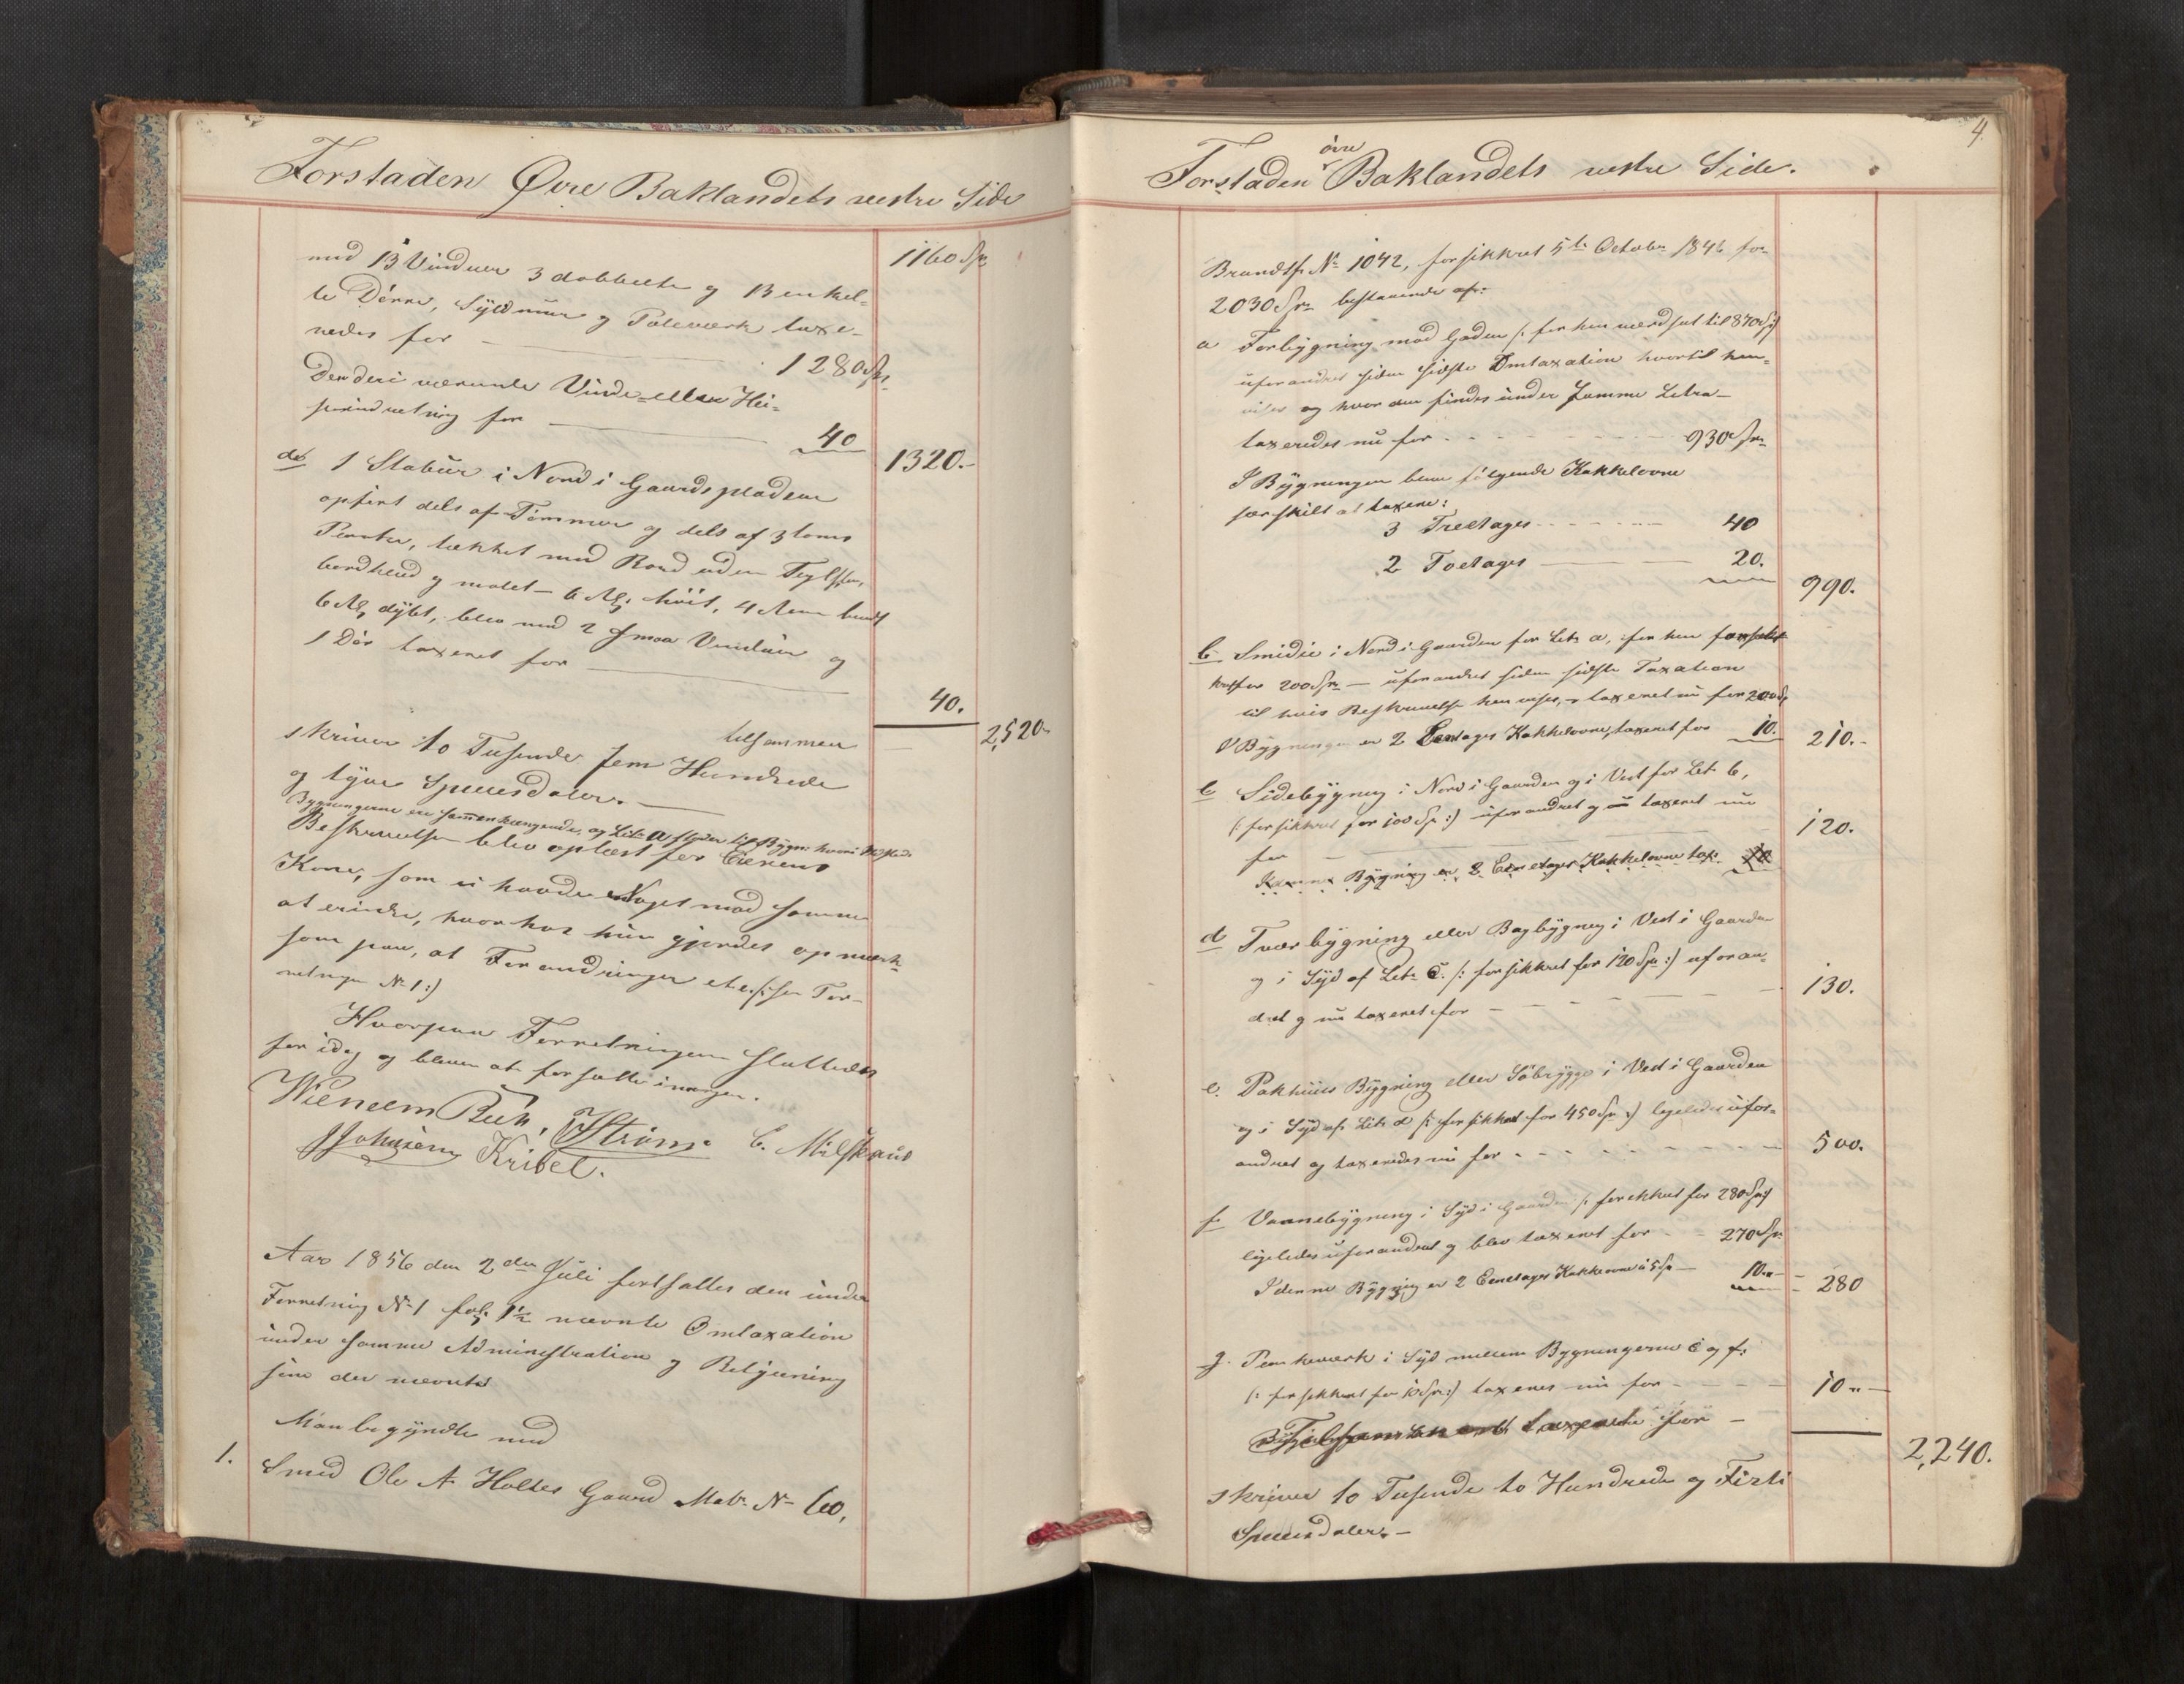 Forstaden Øvre Baklandets vestre Side
med 13 Vinduer 3 dobbelte og 13 enkel- 1160 Spd
te Dörre, Syldmuur og Pæleværk taxe-
redes for 1280 Spd.
Den deri værende Vinde- eller Hei-
seindretning for 40 1320.-
d 1 Stabur i Nord i Gaardspladsen
opfört dels af Tömmer og dels af 3 toms
Planker, tækket med Bord uden Teglsten,
bordklæd og malet - 6 Al. höit, 4 Alen bredt
6 Al. dybt, blev med 2 smaa Vinduer og
1 Dör taxeret for 40.
tilsammen 2,520-
skriver to Tusende fem Hundrede
og tyve Speciesdaler.
Bygningerne ere sammenhængende, og Litr a støder til Bygn:
Beskrivelsen blev oplæst for Eierens
Kone, som ei havde Noget mod samme
at erindre, hvorhos hun gjordes opmærk-
som paa, at Forandringer etc. /: see For-
retningen No 1 :/
Hvorpaa Forretningen sluttedes
for idag og bliver at fortsætte imorgen.
Strøm C. Milstrand
J Johnsen Kribel.
Aar 1856 den 2den Juli fortsattes den under
Forretning No 1 fol. 1½ nævnte Omtaxation
under samme Administration og Betjening
som der nævnt
Man begyndte med
1. Smed Ole A Holtes Gaard Matr. No 60,
4
Forstaden övre Baklandets vestre Side.
Brandf. No 1042, forsikkret 5te October 1846 for
2030 Spd bestaaende af:
a Forbygning mod Gaden /: før hen værdsat til 870 Spd :/
uforandret siden sidste Omtaxation hvortil hen-
vises og hvor den findes under samme Litra -
taxeredes nu for 930 Spd
I Bygningen blev følgende Kakkelovne
særskilt at taxere:
3 Treetages 40
2 Toetages 20. 990.
b Smidie i Nord i Gaarden for Litr a, før hen forsik-
kret for 200 Spd - uforandret siden sidste Taxation
til hvis Beskrivelse henvises, - taxeret nu for 200 Sp
I Bygningen er 2 Eenetages Kakkelovne, taxeret for 10. 210.-
c Sidebygning i Nord i Gaarden og i Vest for Lit b,
/: forsikkret for 100 Spd :/ uforandret og taxeret nu
for 120.
Denne Bygning er 2 Eenetages Kakkelovne tax. 10
d Tværbygning eller Bagbygning i Vest i Gaarden
og i Syd af Litr C. /: forsikkret for 120 Spd :/ uforan-
dret og nu taxeret for 130.
e. Pakhuus Bygning eller Söbrygge i Vest i Gaarden
og i Syd af Litr d /: forsikkret for 450 Spd :/ ligeledes ufor-
andret og taxeredes nu for 500.
f Vaanebygning i Syd i Gaarden /: forsikkret for 280 Spd :/
ligeledes uforandret og blev taxeret for 270 Spd
I denne Bygning er 2 Eenetages Kakkelovne á 5 Sp - 10.- 280
g. Plankeværk i Syd mellem Bygningerne e og f:
/: forsikkret for 10 Spd :/ taxeres nu for 10 -
Tilsammen taxerte for - 2,240.
skriver to Tusende to Hundrede og Firti
Speciesdaler. -